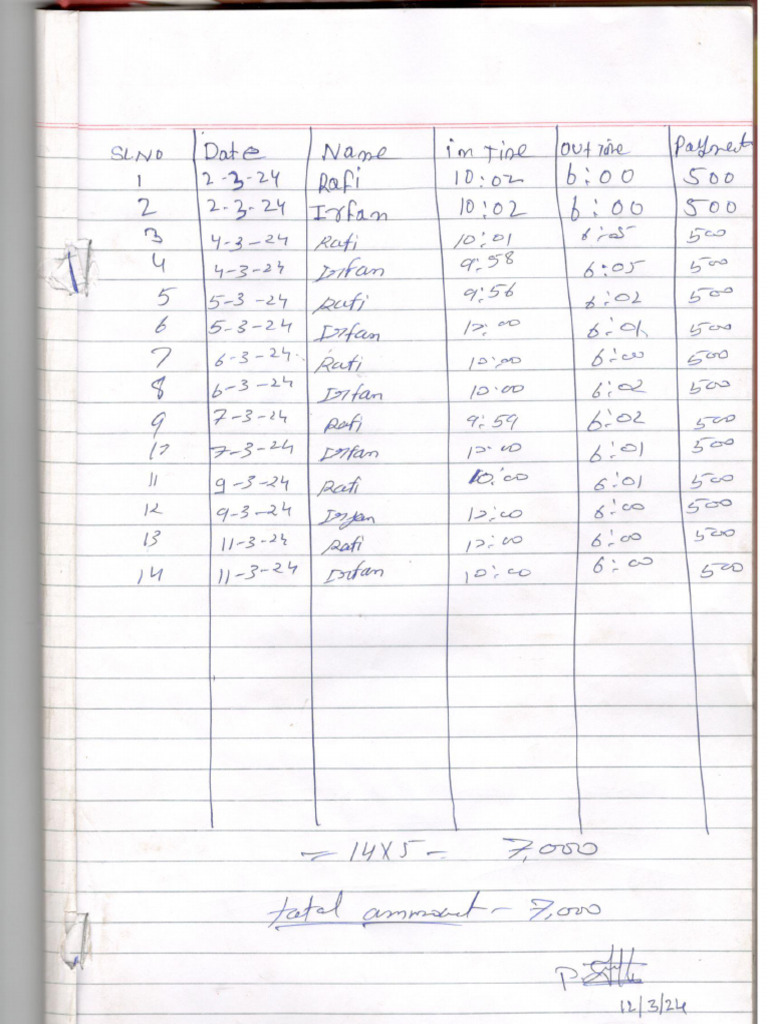 SL NO Date Name in Time OUT Time Payment
1 2-3-24 Rafi 10:02 6:00 500
2 2-3-24 Irfan 10:02 6:00 500
3 4-3-24 Rafi 10:01 6:05 500
4 4-3-24 Irfan 9:58 6:05 500
5 5-3-24 Rafi 9:56 6:02 500
6 5-3-24 Irfan 10:00 6:01 500
7 6-3-24 Rafi 10:00 6:00 500
8 6-3-24 Irfan 10:00 6:02 500
9 7-3-24 Rafi 9:59 6:02 500
10 7-3-24 Irfan 10:00 6:01 500
11 9-3-24 Rafi 10:00 6:01 500
12 9-3-24 Irfan 10:00 6:00 500
13 11-3-24 Rafi 10:00 6:00 500
14 11-3-24 Irfan 10:00 6:00 500
= 14X5 - 7,000
total ammount - 7,000
12/3/24